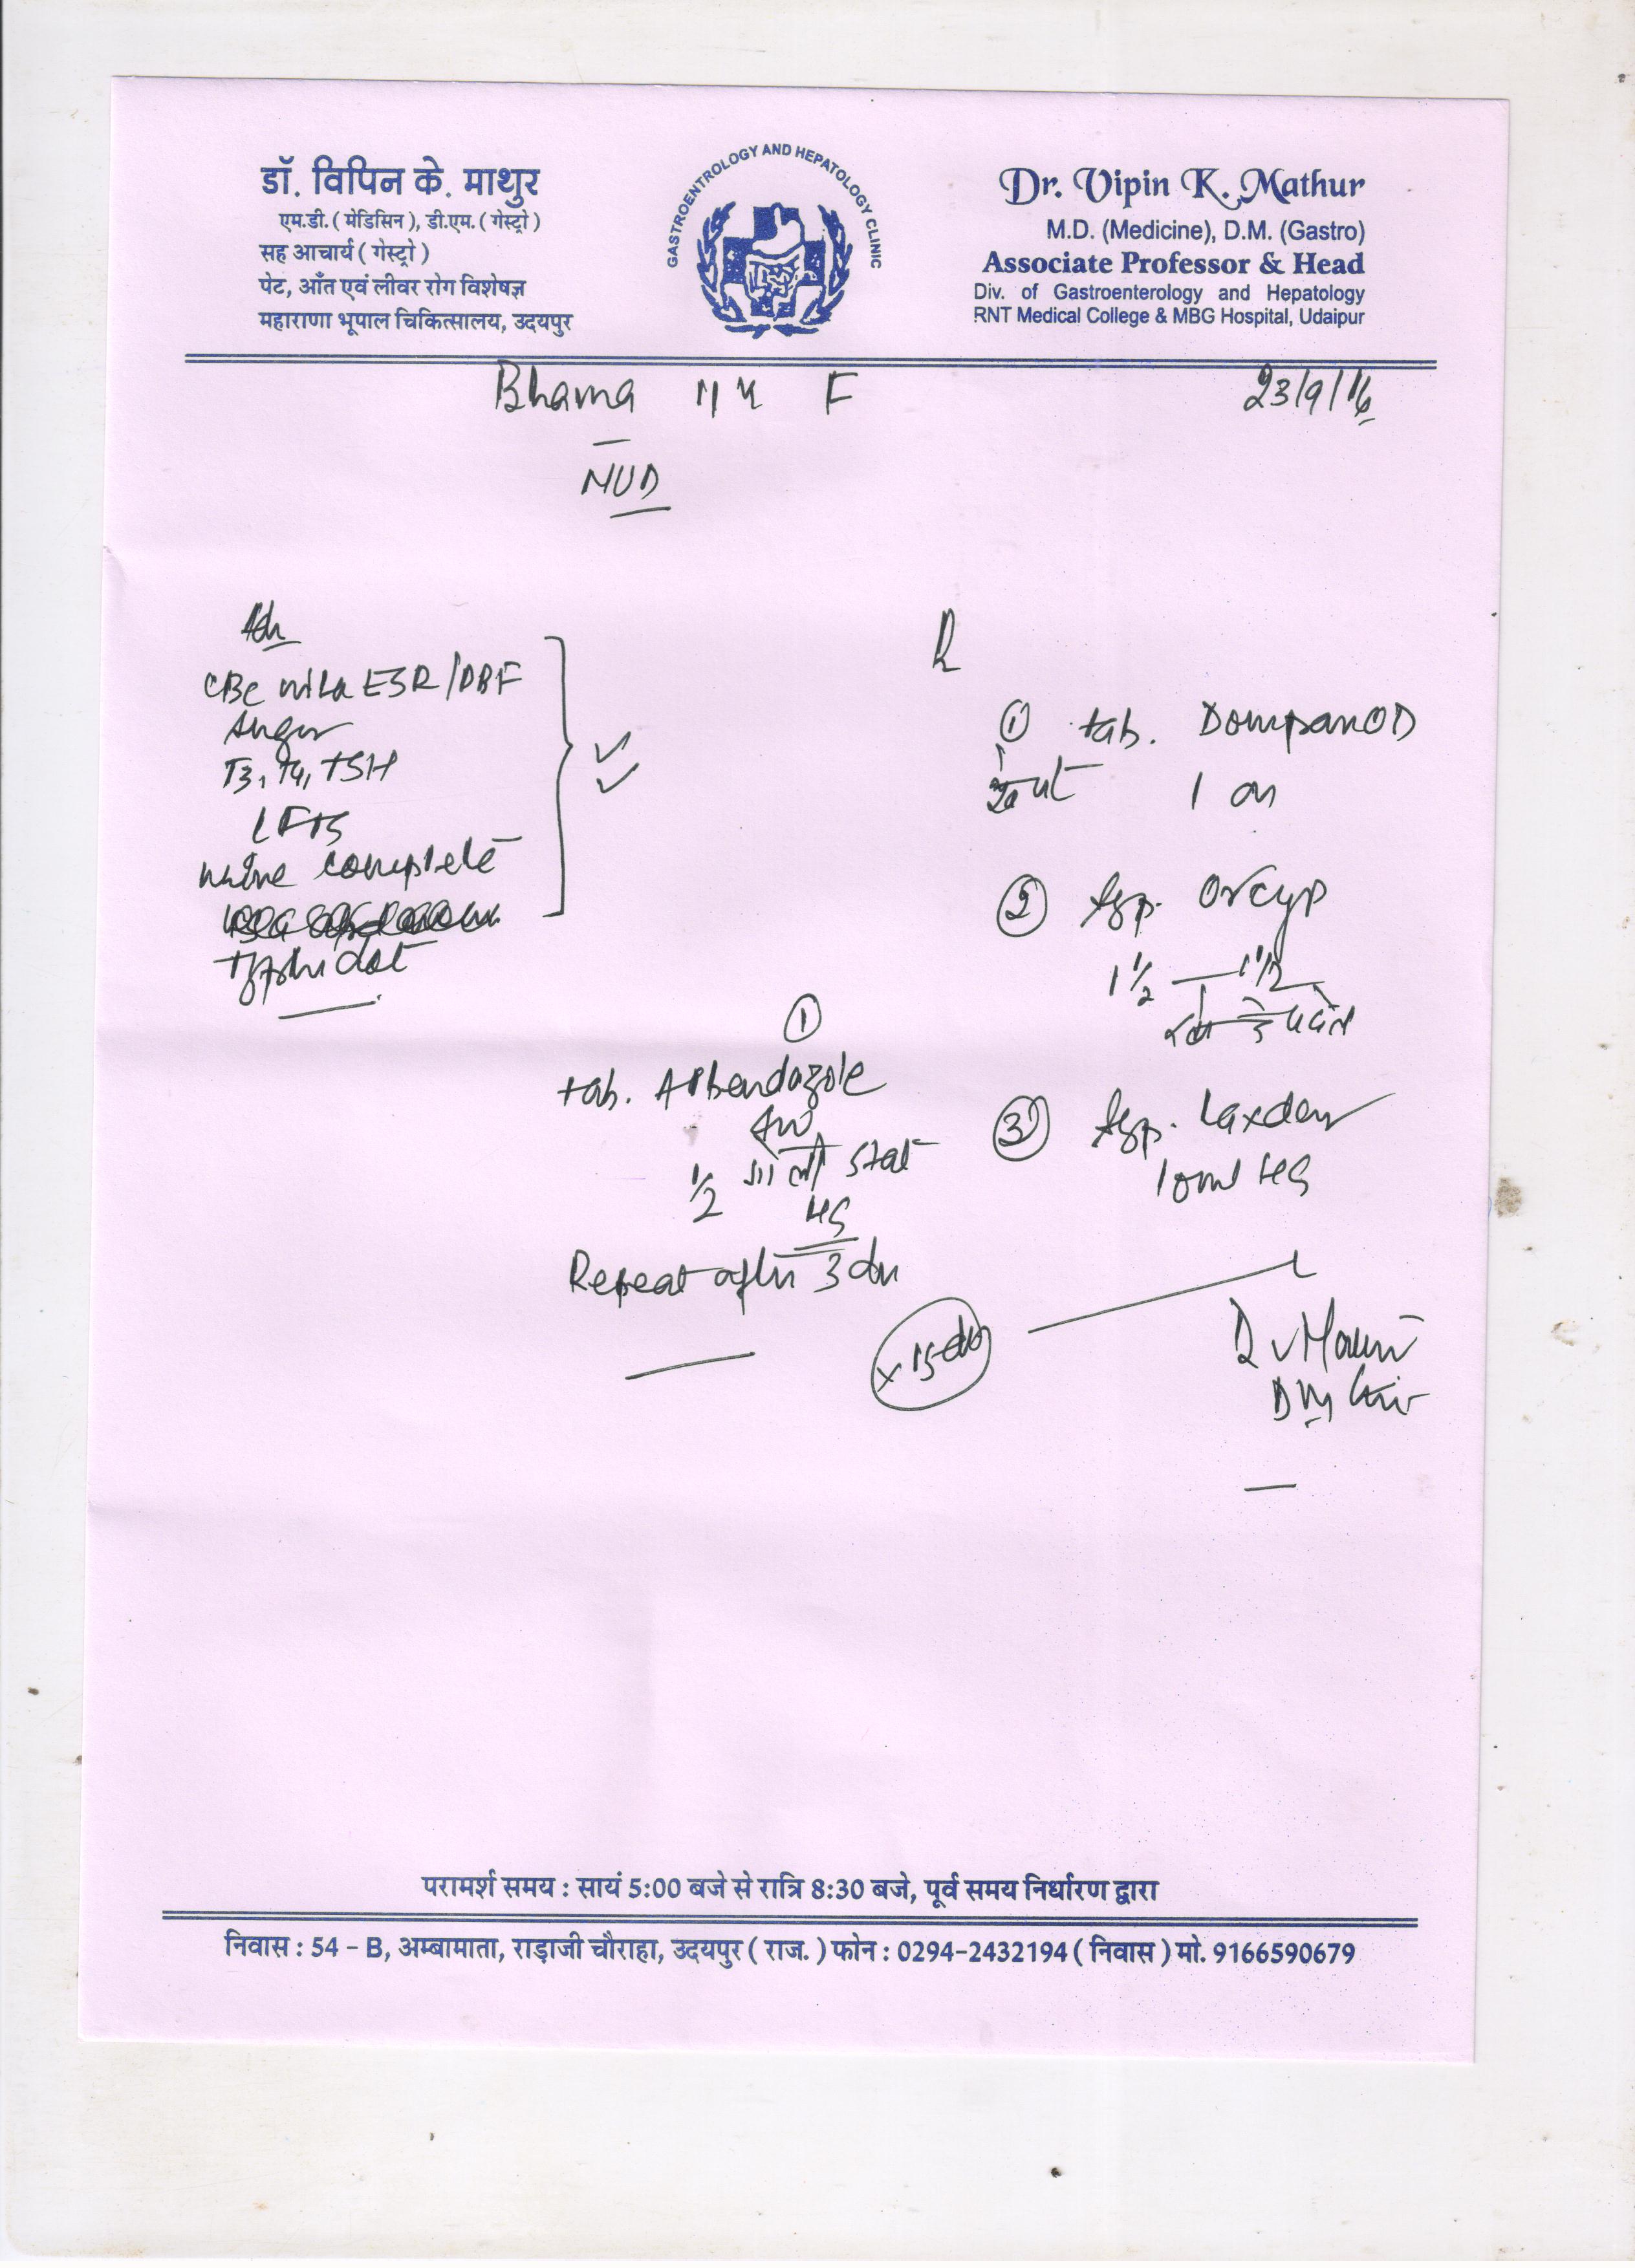 डॉ. विपिन के. माथुर
एम.डी. ( मेडिसिन ), डी.एम. ( गेस्ट्रो )
सह आचार्य ( गेस्ट्रो )
पेट, आँत एवं लीवर रोग विशेषज्ञ
महाराणा भूपाल चिकित्सालय, उदयपुर
GASTROENTROLOGY AND HEPATOLOGY CLINIC
Dr. Vipin K. Mathur
M.D. (Medicine), D.M. (Gastro)
Associate Professor & Head
Div. of Gastroenterology and Hepatology
RNT Medical College & MBG Hospital, Udaipur
Bhavna F 23/9/16
NUD
CBC with ESR/PBF
Sugar
T3, T4, TSH
LFTs
Urine complete
Typhidot
R
① tab. Dompan OD
1
② Syp. Orcyp
1 1/2 — 1 1/2
③ Syp. Laxden
10ml HS
①
tab. Albendazole
1/2 गोली stat
HS
Repeat after 3
x 15
परामर्श समय : सायं 5:00 बजे से रात्रि 8:30 बजे, पूर्व समय निर्धारण द्वारा
निवास : 54 - B, अम्बामाता, राड़ाजी चौराहा, उदयपुर ( राज. ) फोन : 0294-2432194 ( निवास ) मो. 9166590679